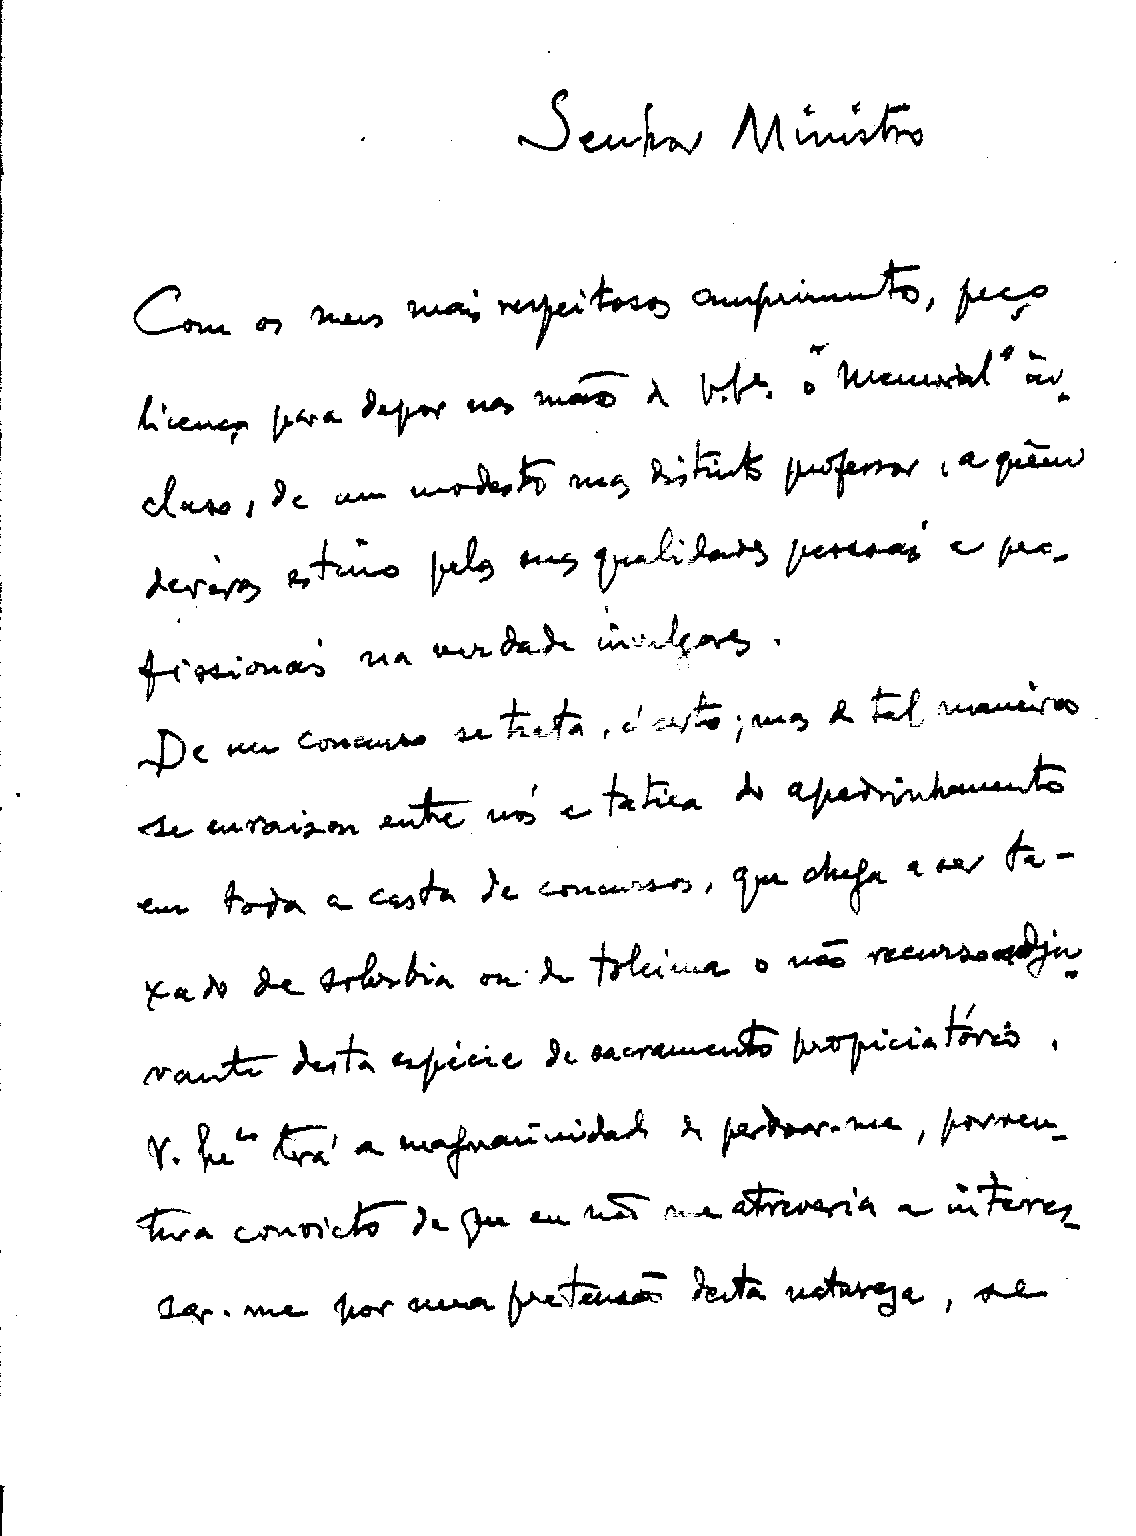 Senhor Ministro
Com os meus mais respeitosos cumprimentos, peço
licença para depor nas mãos de V. Exa. o "Memorial" in-
cluso, de um modesto mas distinto professor, a quem
deveras estimo pelas suas qualidades pessoais e pro-
fissionais na verdade invulgares.
De um concurso se trata, é certo; mas de tal maneira
se enraizou entre nós a tática do apadrinhamento
em toda a casta de concursos, que chega a ser ta-
xado de soberbia ou de toleima o não recurso adju-
vante desta espécie de sacramento propiciatório.
V. Exa terá a magnanimidade de perdoar-me, porven-
tura convicto de que eu não me atreveria a interes-
sar-me por uma pretensão desta natureza, se